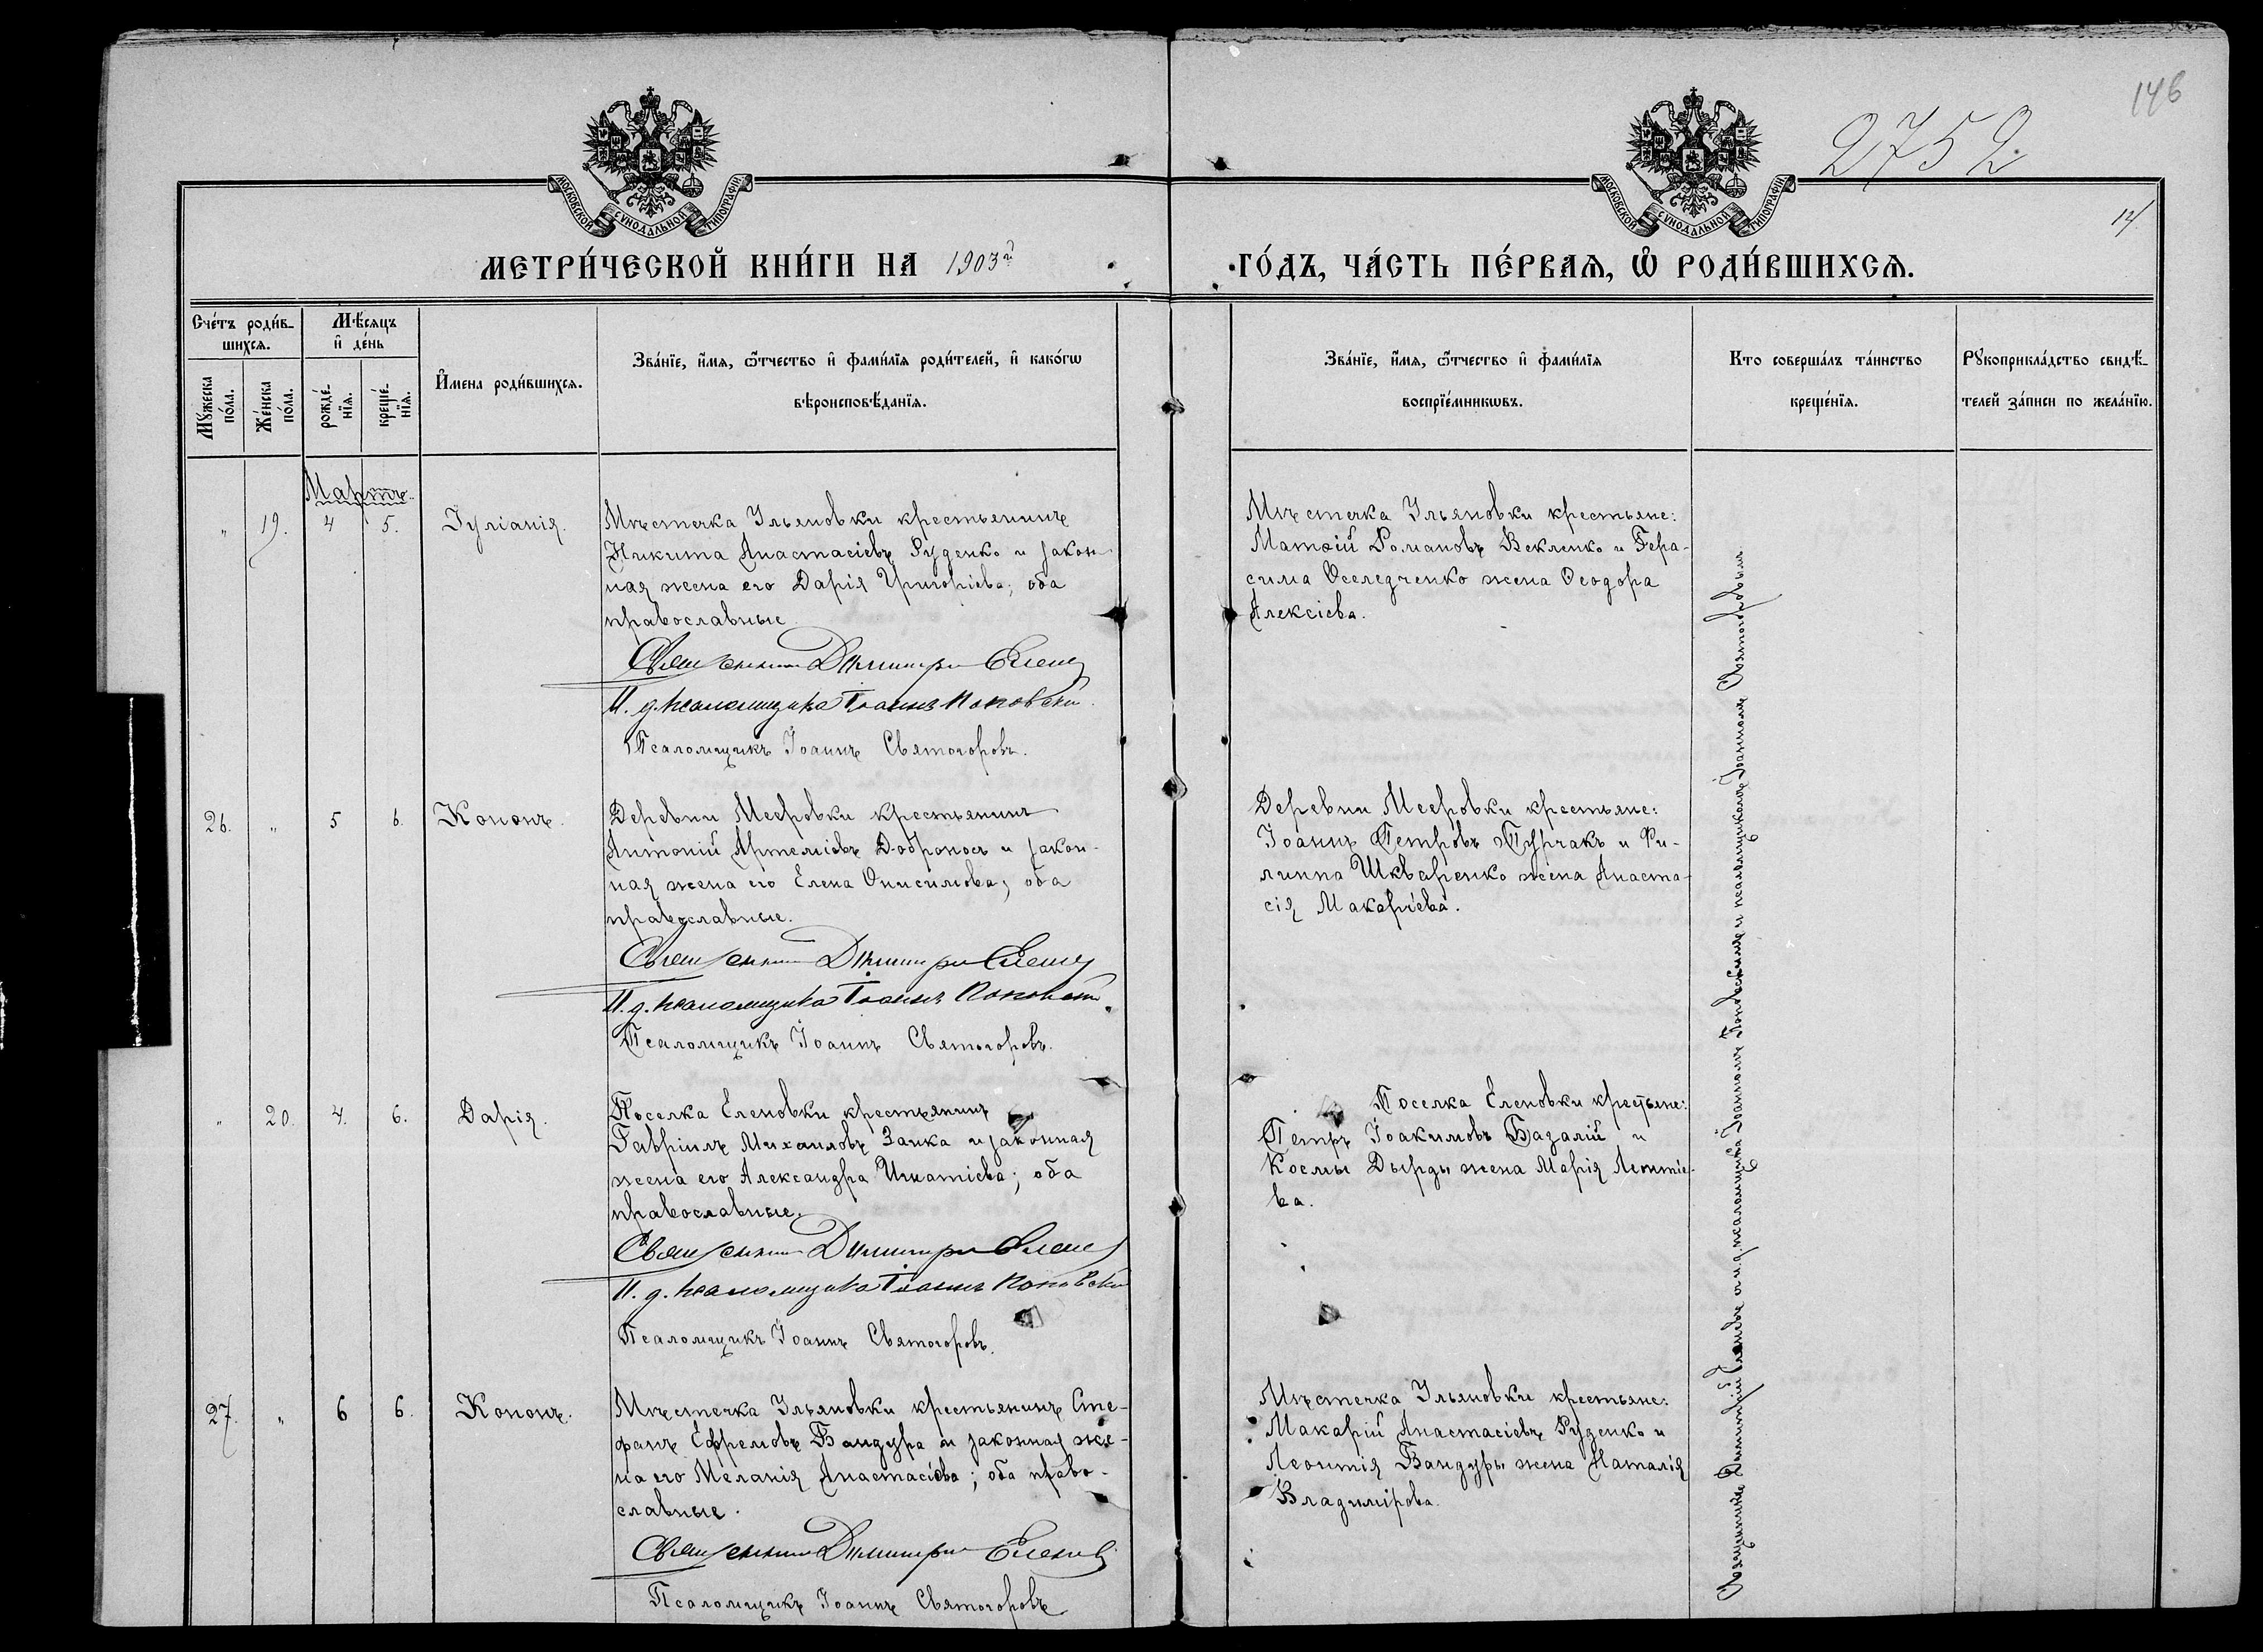 146
2752
12
МОСКОВСКОЙ СѴНОДАЛЬНОЙ ТИПОГРАФІИ
МОСКОВСКОЙ СѴНОДАЛЬНОЙ ТИПОГРАФІИ
МЕТРИ́ЧЕСКОЙ КНИ́ГИ НА 1903й
ГО́ДЪ, ЧА́СТЬ ПЕ́РВАѦ, Ѽ РОДИ́ВШИХСѦ.
Сче́тъ роди́в-
шихсѧ.
Мꙋ́жеска
по́ла.
Же́нска
по́ла.
Мѣ́сяцъ
и҆ де́нь
рожде́-
нїѧ.
креще́-
нїѧ.
И҆мена роди́вшихсѧ.
Зва́нїе, и҆́мѧ, ѻ҆́тчество и҆ фами́лїѧ роди́телей, и҆ како́гѡ
вѣроисповѣ́данїѧ.
Зва́нїе, и҆́мѧ, ѻ҆́тчество и҆ фами́лїѧ
воспрїе́мникѡвъ.
Кто соверша́лъ та́инство
креще́нїѧ.
Рꙋкоприкла́дство свидѣ́-
телей за́писи по жела́нїю.
Мартъ
" 19. 4 5. Іуліанія.
Мѣстечка Ульяновки крестьянинъ
Никита Анастасіевъ Руденко и закон-
ная жена его Дарія Григоріева; оба
православные.
Священникъ Димитри
И. д. псаломщика Іоаннъ Поповскій.
Псаломщикъ Іоаннъ Святогоровъ.
Мѣстечка Ульяновки крестьяне:
Матѳій Романовъ Векленко и Гера-
сима Оселедченко жена Ѳеодора
Алексіева.
26. " 5 6. Кононъ.
Деревни Мееровки крестьянинъ
Антоній Артеміевъ Доброносъ и закон-
ная жена его Елена Онисимова; оба
православные.
Священникъ Димитри
И. д. псаломщика Іоаннъ Поповскій.
Псаломщикъ Іоаннъ Святогоровъ.
Деревни Мееровки крестьяне:
Іоаннъ Петровъ Пурчакъ и Фи-
липпа Шкваренко жена Анаста-
сія Макаріева.
" 20. 4. 6. Дарія.
Поселка Еленовки крестьянинъ
Гавріилъ Михаиловъ Заика и законная
жена его Александра Игнатіева; оба
православные.
Священникъ Димитри
И. д. псаломщика Іоаннъ Поповскій
Псаломщикъ Іоаннъ Святогоровъ.
Поселка Еленовки крестьяне:
Петръ Іоакимовъ Базалій и
Космы Дырды жена Марія Леонтіе-
ва.
27. " 6 6. Кононъ.
Мѣстечка Ульяновки крестьянинъ Сте-
фанъ Ефремовъ Бандура и законная же-
на его Меланія Анастасіева; оба право-
славные.
Священникъ Димитри
Псаломщикъ Іоаннъ Святогоровъ
Мѣстечка Ульяновки крестьяне:
Макарій Анастасіевъ Руденко и
Леонтія Бандуры жена Наталія
Владимірова.
Священникъ Димитрій съ и. д. псаломщика Іоанномъ Поповскимъ и псаломщикомъ Іоанномъ Святогоровымъ